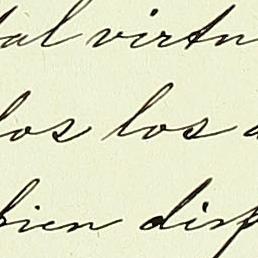 tal virtu
los los a
bien disp